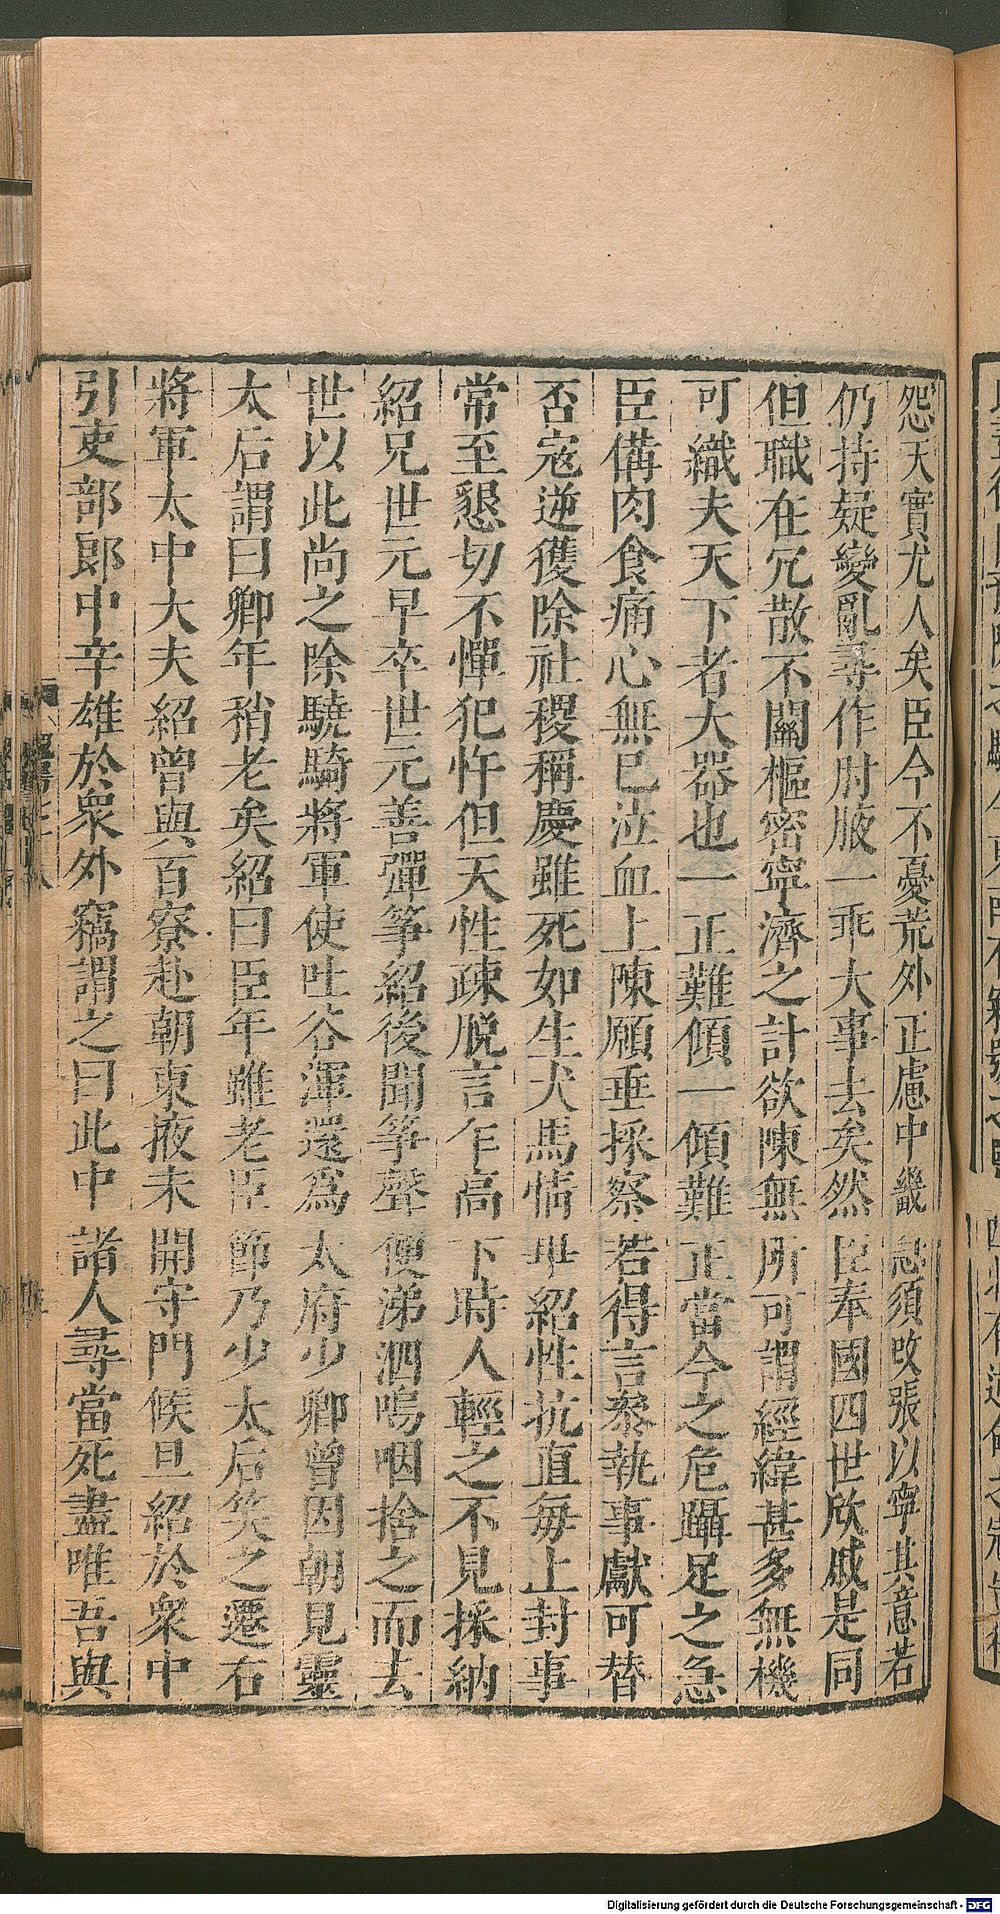 怨天實尤人矣臣今不憂荒外正慮中畿急須改張以寧其意若
仍持疑變亂尋作肘腋一乖大事去矣然臣奉國四世欣戚是同
但職在冗散不關樞密寧濟之計欲陳無所可謂經緯甚多無機
可織夫天下者大器也一正難傾一傾難正當今之危躡足之急
臣備肉食痛心無已泣血上陳願垂採察若得言參執事獻可替
否寇逆獲除社稷稱慶雖死如生犬馬情畢紹性抗直每上封事
常至懇切不憚犯忤但天性疎脱言乍高下時人輕之不見採納
紹兄世元早卒世元善彈筝紹後聞筝聲便涕泗嗚咽捨之而去
世以此尚之除驍騎將軍使吐谷渾還爲太府少卿曾因朝見靈
太后謂曰卿年稍老矣紹曰臣年雖老臣節乃少太后笑之遷右
將軍太中大夫紹曾與百寮赴朝東掖未開守門候旦紹於衆中
引吏部郎中辛雄於衆外竊謂之曰此中諸人尋當死盡唯吾與
Digitalisierung gefördert durch die Deutsche Forschungsgemeinschaft - DFG